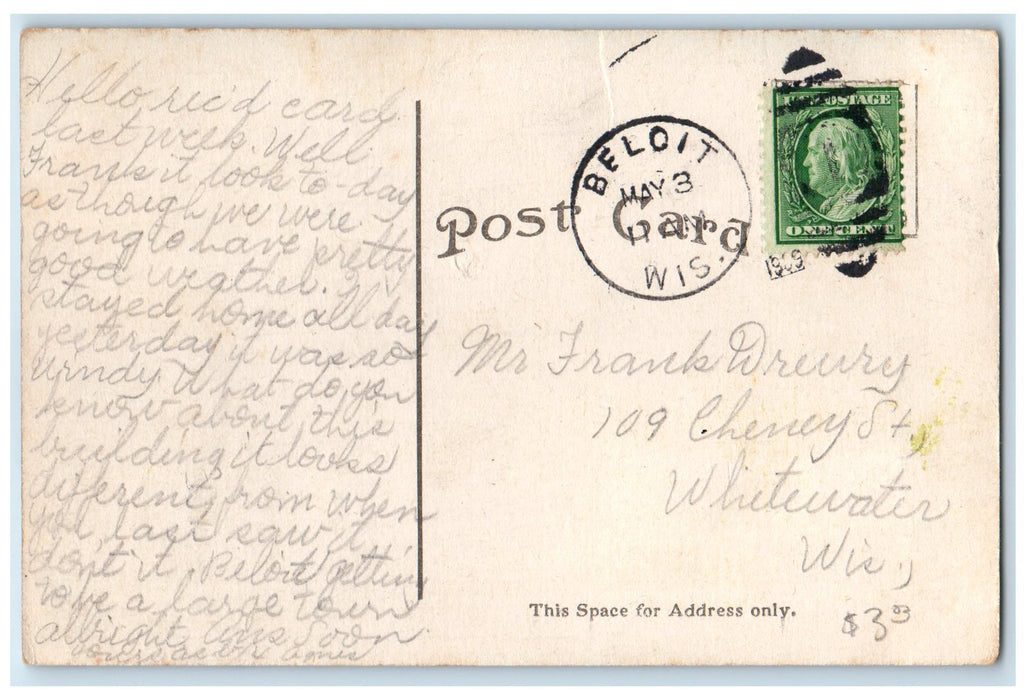 Hello rec'd card
last week. Well
Frank it look to-day
as though we were
going to have pretty
good weather. I
stayed home all day
yesterday it was so
windy. What do you
know about this
building it looks
diferent from when
you last saw it
don't it. Beloit getting
to be a large town
alright. Ans Soon
Yours as
Post Card
BELOIT
MAY 3
WIS.
1909
U.S. POSTAGE
ONE CENT
Mr Frank Drewry
109 Cheney St,
Whitewater
Wis.,
This Space for Address only.
$3